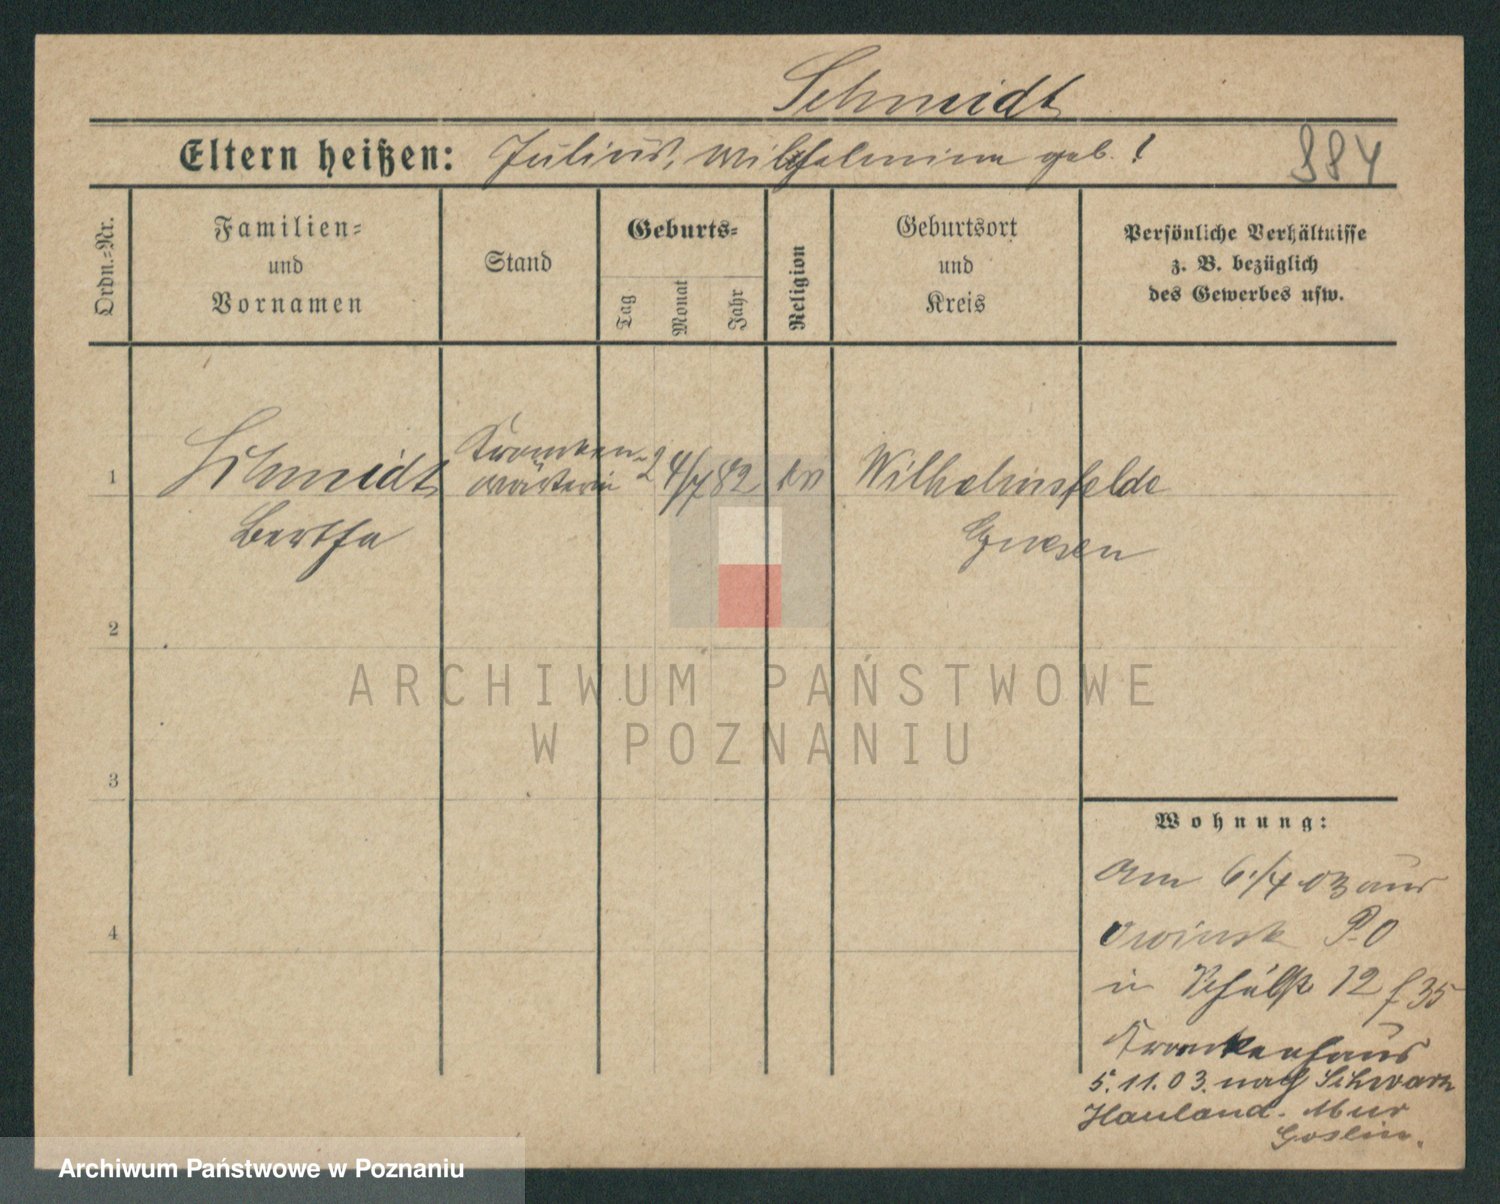 Schmidt
Eltern heißen: Julius, Wilhelmine geb. !
984
Ordn.-Nr.
Familien-
und
Vornamen
Stand
Geburts-
Tag
Monat
Jahr
Religion
Geburtsort
und
Kreis
Persönliche Verhältnisse
z. B. bezüglich
des Gewerbes usw.
1
Schmidt
Bertha
Kranken-
wärterin
24/7 82
ev
Wilhelmsfelde
Gnesen
2
3
4
Wohnung:
Am 6/4 03 aus
Owinsk P.O
in Schulstr 12 f 35
Krankenhaus
5.11.03. nach Schwarz
Hauland. Mur
Goslin.
ARCHIWUM PAŃSTWOWE
W POZNANIU
Archiwum Państwowe w Poznaniu